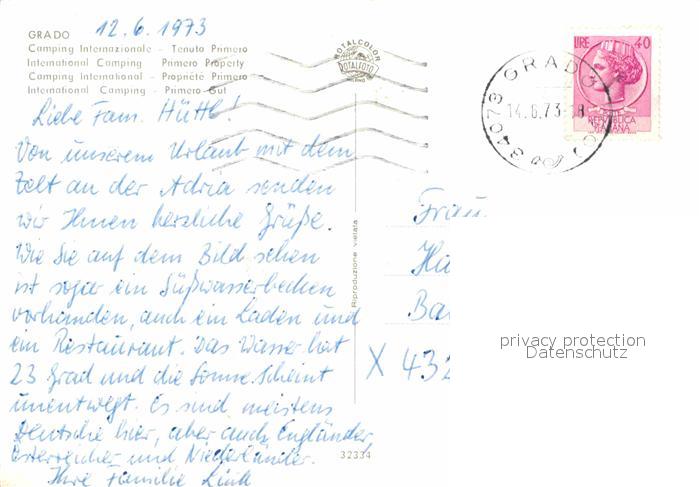 12.6.1973
GRADO
Camping Internazionale - Tenuta Primero
International Camping - Primero Property
Camping International - Propriété Primero
International Camping - Primero Gut
Liebe Fam. Hüttl!
Von unserem Urlaub mit dem
Zelt an der Adria senden
wir Ihnen herzliche Grüße.
Wie Sie auf dem Bild sehen
ist sogar ein Süßwasserbecken
vorhanden, auch ein Laden und
ein Restaurant. Das Wasser hat
23 Grad und die Sonne scheint
unentwegt. Es sind meistens
Deutsche hier, aber auch Engländer,
Österreicher und Niederländer.
Ihre Familie Link
ROTALCOLOR
ROTALFOTO
MILANO
Riproduzione vietata
32334
LIRE 40
REPUBBLICA
ITALIANA
GRADO
14.6.73-18
34073
Frau
Hü
Ba
X 432
privacy protection
Datenschutz